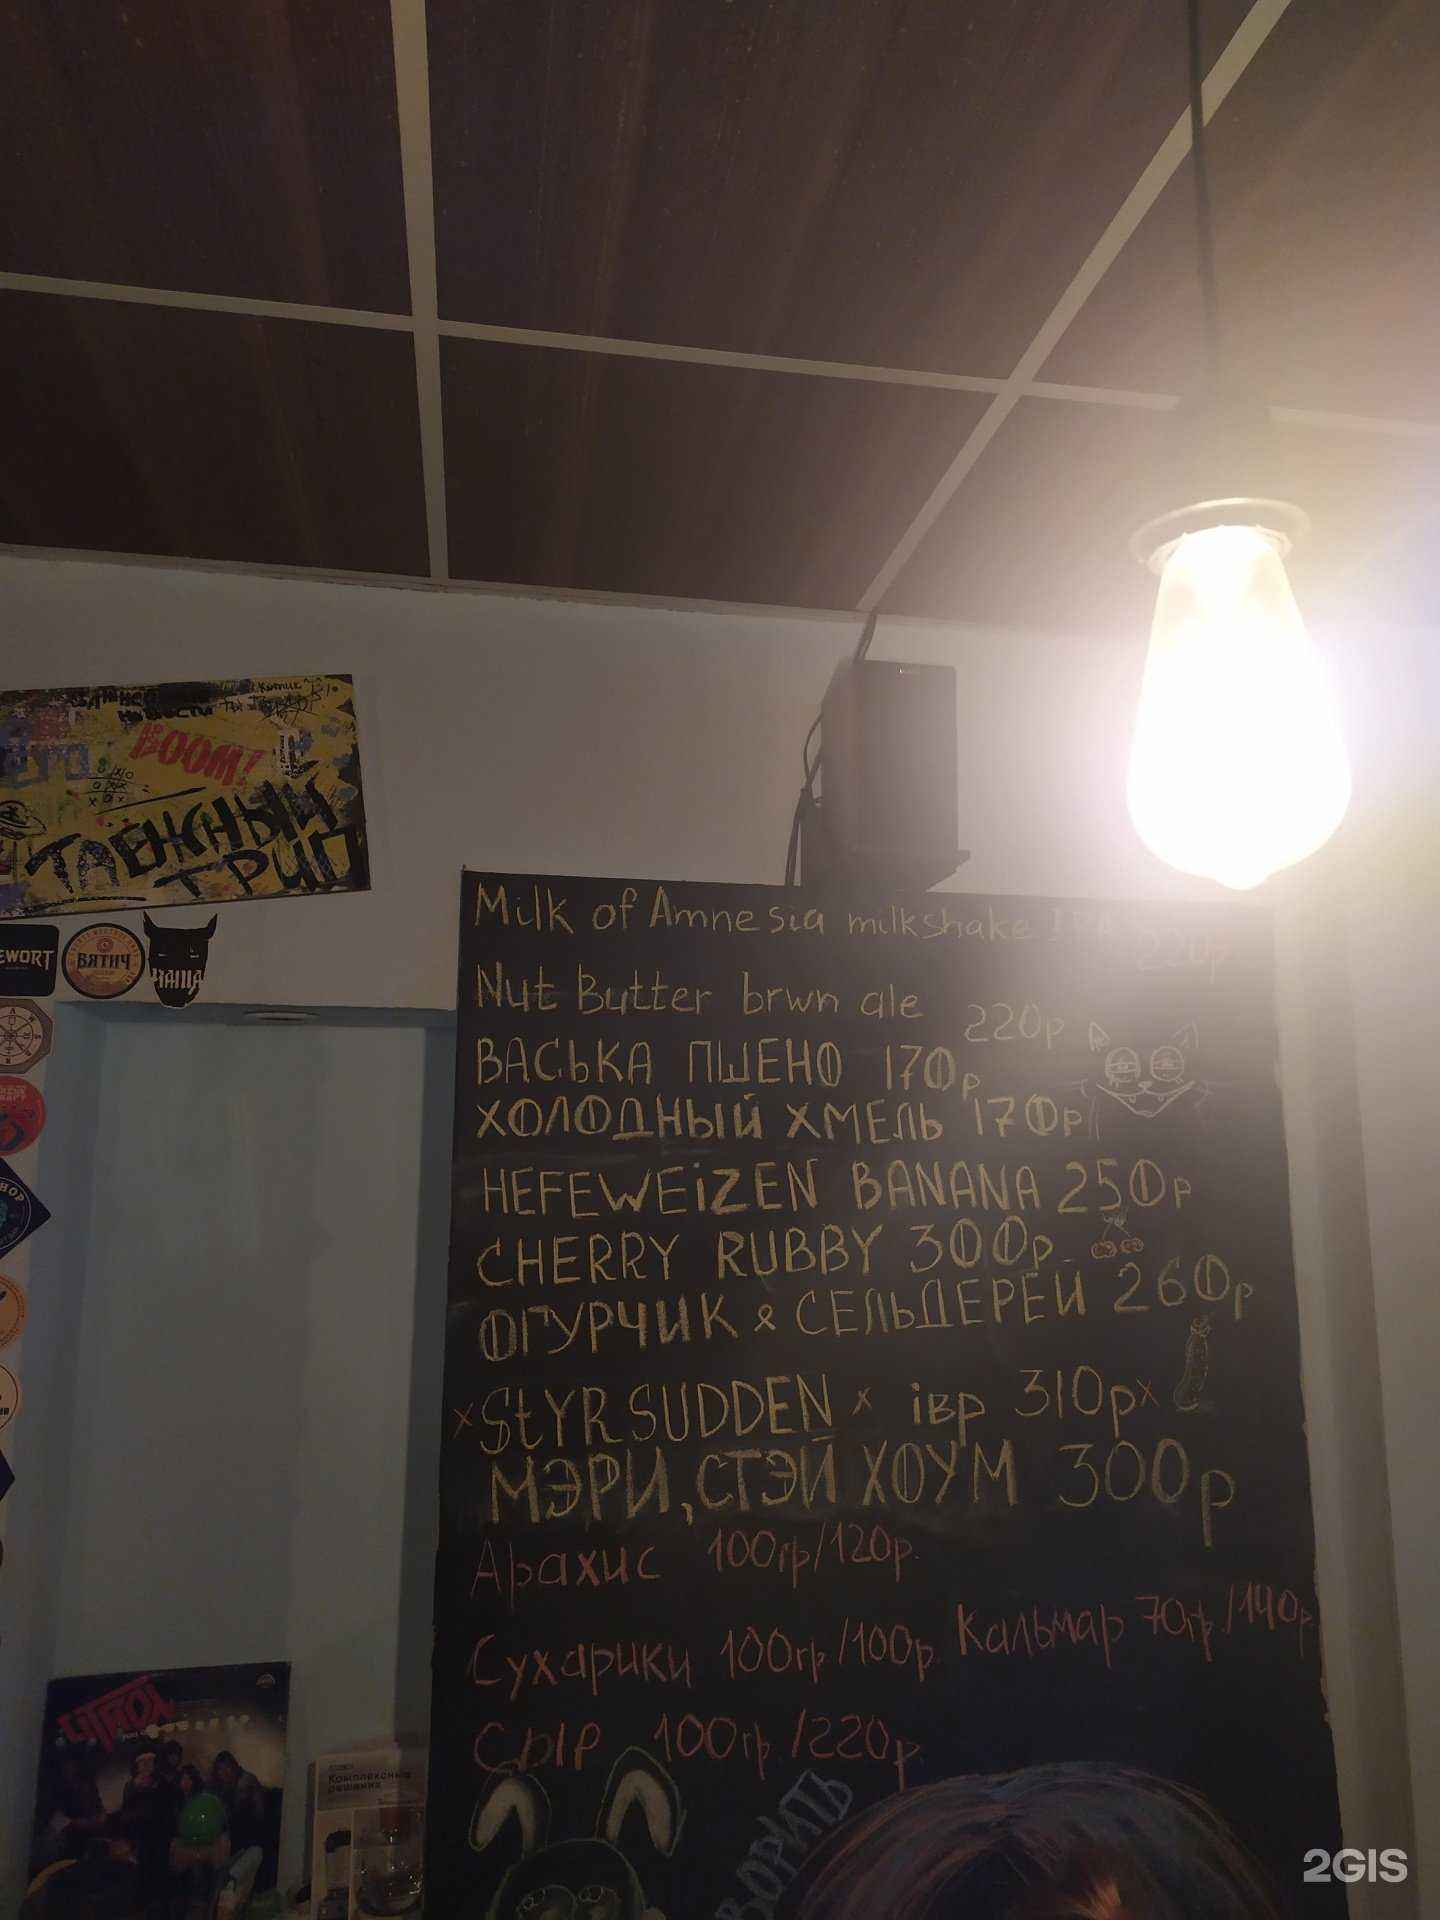 BOOM!
ТАЁЖНЫЙ
ТРИП
EWORT
ВЯТИЧ
ЧАЩА
Milk of Amnesia milkshake IPA
220р
Nut Butter brwn ale 220р
ВАСЬКА ПШЕНО 170р
ХОЛОДНЫЙ ХМЕЛЬ 170р
HEFEWEiZEN BANANA 250р
CHERRY RUBBY 300р
ОГУРЧИК & СЕЛЬДЕРЕЙ 260р
x StYR SUDDEN x iвр 310р x
МЭРИ, СТЭЙ ХОУМ 300р
Арахис 100гр/120р.
Сухарики 100гр/100р. Кальмар 70гр./140р.
Сыр 100гр/220р.
CITRON
Комплексные
решения
2GIS